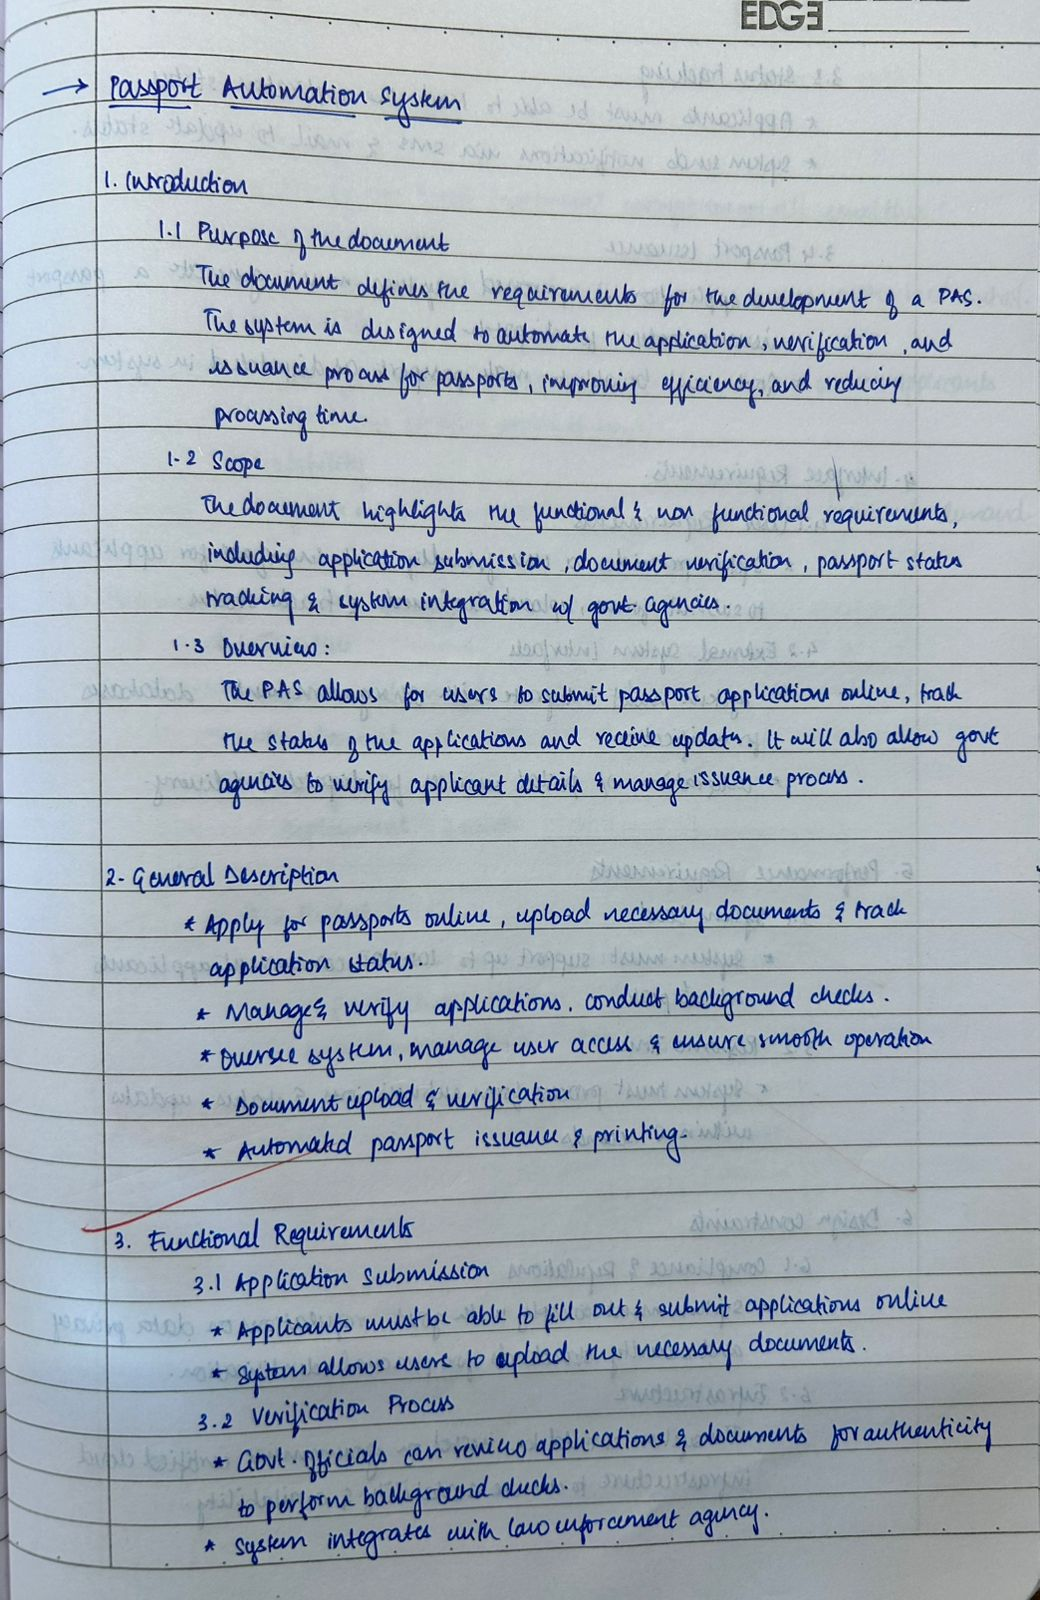 EDGE
→ Passport Automation System
1. Introduction
1.1 Purpose of the document
The document defines the requirements for the development of a PAS.
The system is designed to automate the application, verification, and
issuance process for passports, improving efficiency, and reducing
processing time.
1.2 Scope
The document highlights the functional & non functional requirements,
including application submission, document verification, passport status
tracking & system integration w/ govt. agencies.
1.3 Overview:
The PAS allows for users to submit passport applications online, track
the status of the applications and receive updates. It will also allow govt
agencies to verify applicant details & manage issuance process.
2. General Description
* Apply for passports online, upload necessary documents & track
application status.
* Manage & verify applications, conduct background checks.
* Oversee system, manage user access & ensure smooth operation
* Document upload & verification
* Automated passport issuance & printing.
3. Functional Requirements
3.1 Application Submission
* Applicants must be able to fill out & submit applications online
* System allows users to upload the necessary documents.
3.2 Verification Process
* Govt. officials can review applications & documents for authenticity
to perform background checks.
* System integrates with law enforcement agency.